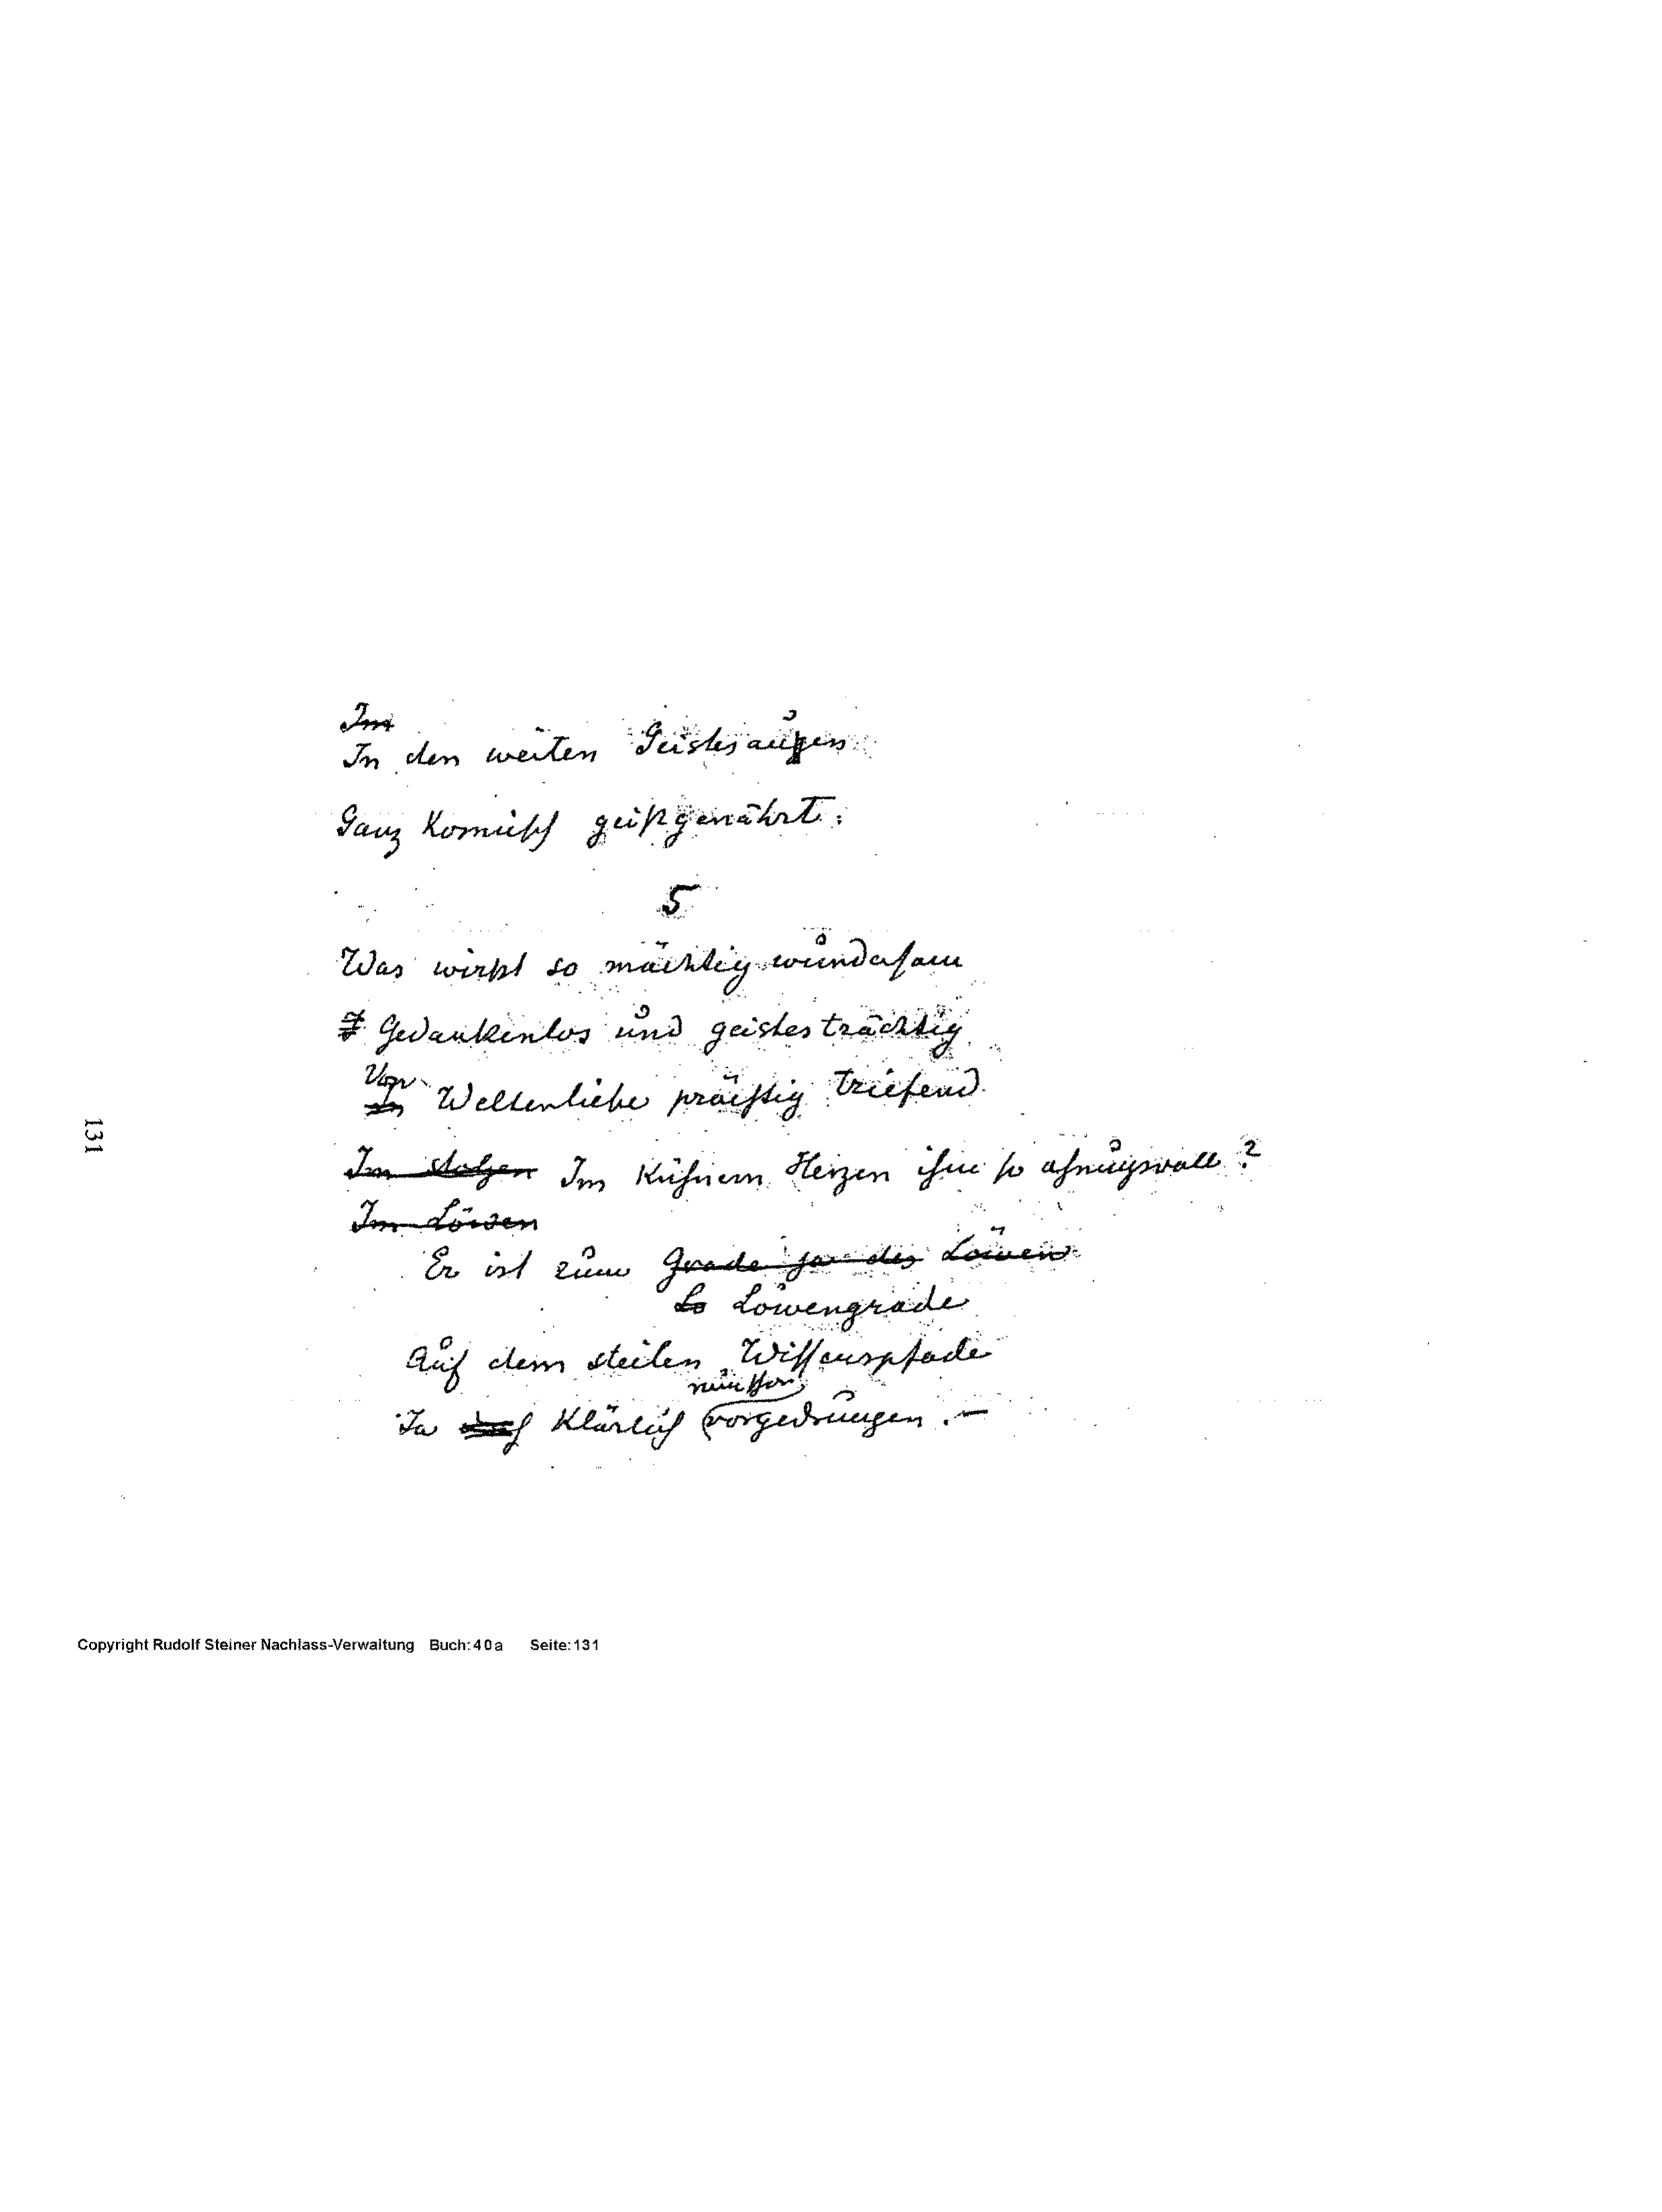 Im
In den weiten Geistesaugen
Ganz komisch geistgenährt.
5
Was wirkt so mächtig wundersam
I Gedankenlos und geistesträchtig
Von
In Weltenliebe prächtig triefend
Im stolzen Im kühnem Herzen ihm so ahnungsvoll?
Im Löwen
Er ist zum Grade ja des Löwen
Lö Löwengrade
Auf dem steilen Wissenspfade
nun schon
Ja doch klärlich vorgedrungen. —
131
Copyright Rudolf Steiner Nachlass-Verwaltung Buch: 40a Seite: 131